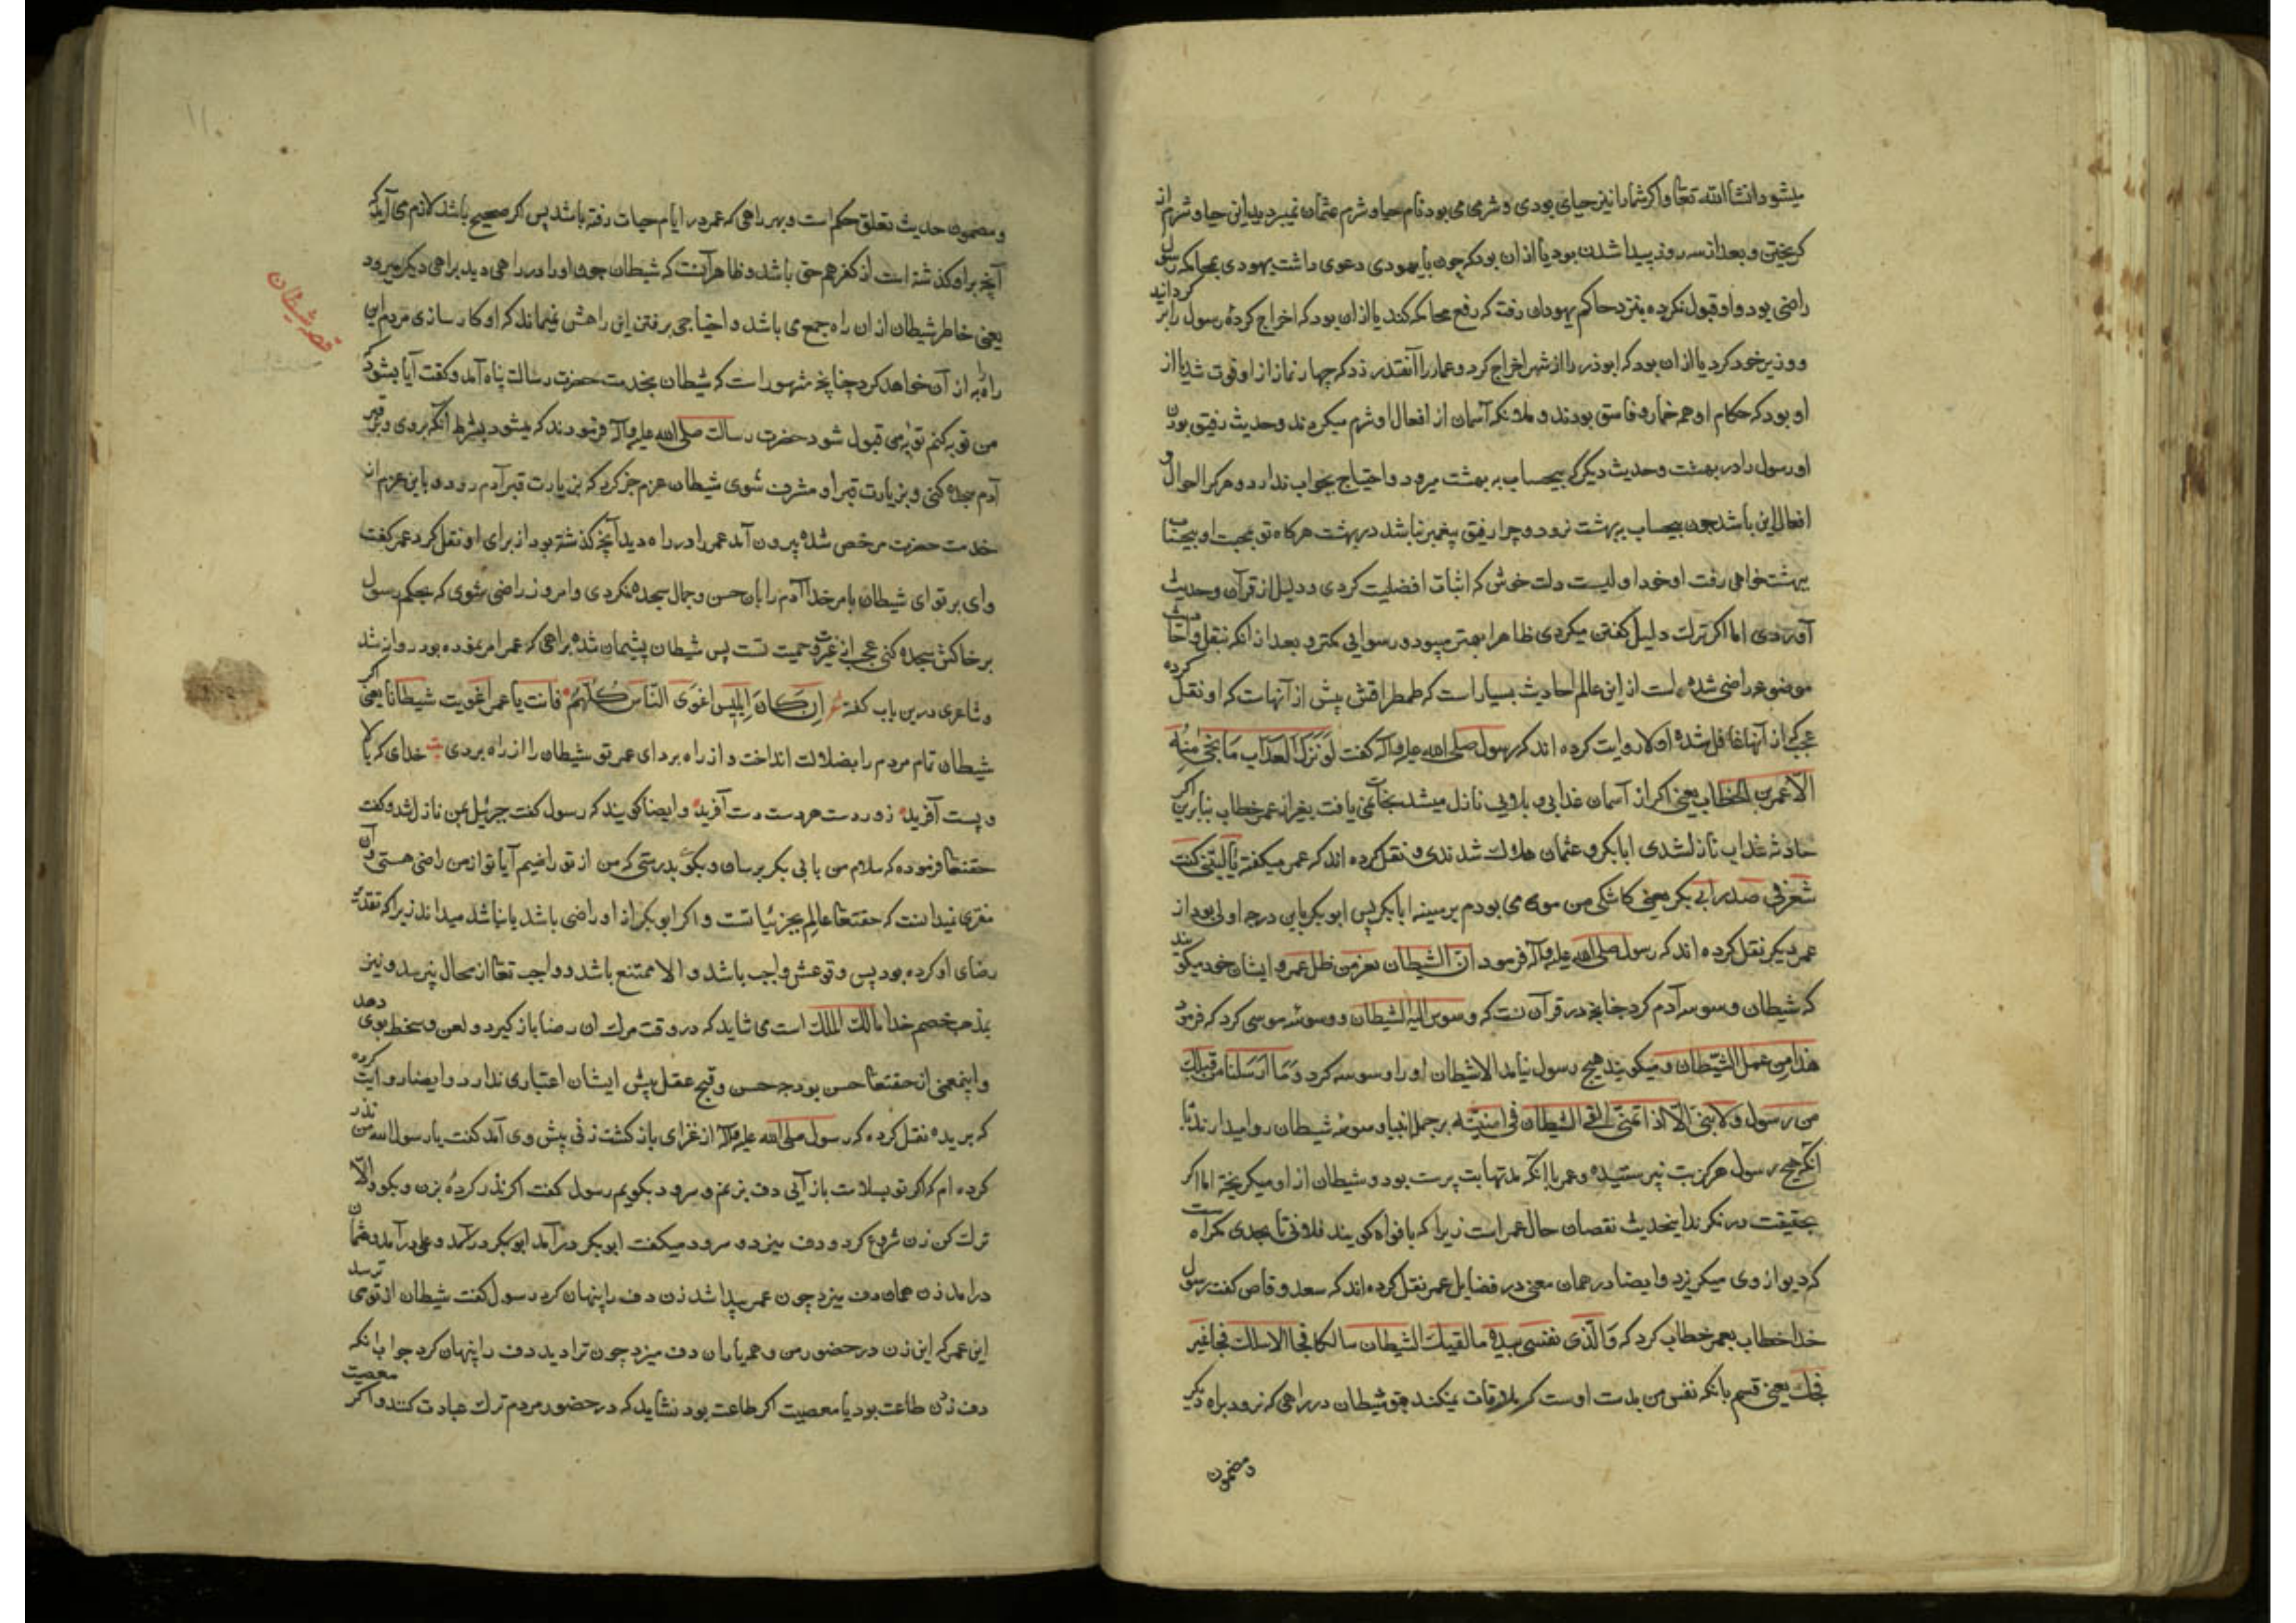 میشود انشاالله تعا واکر شما را نیز حیای بودی و شرمی می بود نام حیا و شرم عثمان نمیبردید این حیا و شرم از
کریختن و بعد از سه روز پیدا شدن بود یا از ان بود که چون با یهودی دعوی داشت یهودی بمحاکمه رسول
راضی بود و او قبول نکرده بنزد حاکم یهودان رفت که رفع محاکمه کند یا از ان بود که اخراج کردۀ رسول را بر کردانید
و وزیر خود کرد یا از ان بود که ابوذر را از شهر اخراج کرد و عمار را آنقدر زد که چهار نماز از او فوت شد یا از
او بود که حکام او همه خمار و فاسق بودند و ملائکه آسمان از افعال او شرم میکردند و حدیث رفیق بودن
او رسول را در بهشت و حدیث دیکر که بیحساب به بهشت میرود و احتیاج بجواب ندارد و هرکرا احوال و
افعال این باشد چون بیحساب ببهشت نرود و چرا رفیق پیغمبر نباشد در بهشت هرکاه تو بمحبت او بیحساب
ببهشت خواهی رفت او خود اولیست دلت خوش که اثبات افضلیت کردی و دلیل از قرآن و حدیث
آوردی اما اکر ترک دلیل کفتن میکردی ظاهرا بهتر میبود و رسوایی کمتر و بعد از انکه بنقل احادیث
موضوعه راضی شده است از این عالم احادیث بسیار است که طمطراقش پیش از آنهاست که او نقل کرده
عجب که از آنها غافل شده اولا روایت کرده اند که رسول صلی الله علیه وآله کفت لَو نَزَلَ العَذاب مَا نجی مِنه
الا عمر بن الخطاب یعنی اکر از آسمان عذابی و بلایی نازل میشد نجات نمی یافت بغیر از عمر خطاب بنابرین اکر
حادثه عذاب نازلشدی ابابکر و عثمان هلاک شدندی و نقل کرده اند که عمر میکفته یا لیتنی کنت
شعر فی صدر ابی بکر یعنی کاشکی من موی می بودم بر سینه ابابکر پس ابوبکر باین درجه اولی بود از
عمر دیکر نقل کرده اند که رسول صلی الله علیه وآله فرمود ان الشیطان یفر من ظل عمر و ایشان خود میکویند
که شیطان وسوسه آدم کرد چنانچه در قرآنست که وسوس الیه الشیطان و وسوسه موسی کرد که فرمود
هذا من عمل الشیطان و میکویند هیچ رسول نیامد الا شیطان او را وسوسه کرد وَمَا ارسَلنا من قبلک
من رسول ولا نبی الا اذا تمنی القی الشیطان فی امنیته بر جمله انبیا وسوسه شیطان روا میدارند با
آنکه هیچ رسول هرکز بت نپرستیده و عمر با آنکه مدتها بت پرست بود و شیطان از او میکریخته اما اکر
بحقیقت درنکرند اینحدیث نقصان حال عمر است زیرا که بافواه کویند فلانی تا بحدی کمراهست
که دیو از وی میکریزد و ایضا در همان معنی در فضایل عمر نقل کرده اند که سعد وقاص کفت رسول
خدا خطاب بعمر خطاب کرد که وَالّذی نفسی بیده ما لقیک الشیطان سالکا فجا الا سلک فجا غیر
فجک یعنی قسم بانکه نفس من بدست اوست که ملاقات نمیکند بتو شیطان در راهی که نرود براه دیکر
و مضمون
۱۱۰
و مضمون حدیث تعلق حکم است و بهر راهی که عمر در ایام حیات رفته باشد پس اکر صحیح باشد لازم می آید که
آنچه بر او کذشته است از کفر هم حق باشد و ظاهر آنست که شیطان چون او را در راهی دید براهی دیکر میرود
یعنی خاطر شیطان از ان راه جمع می باشد و احتیاجی برفتن این راهش نمیماند که او کارسازی مردم این
راه به از آن خواهد کرد چنانچه مشهور است که شیطان بخدمت حضرت رسالت پناه آمد و کفت آیا میشود که
من توبه کنم توبه می قبول شود حضرت رسالت صلی الله علیه وآله فرمودند که میشود بشرط انکه بروی و بر قبر
آدم سجده کنی و بزیارت قبر او مشرف شوی شیطان عزم جزم کرد که بزیارت قبر آدم رود و باین عزم از
خدمت حضرت مرخص شده بیرون آمد عمر او را در راه دید آنچه کذشته بود از برای او نقل کرد عمر کفت
وای بر تو ای شیطان بامر خدا آدم را با آن حسن و جمال سجده نکردی و امروز راضی میشوی که بحکم رسول
بر خاکش سجده کنی عجب از غیرت و حمیت تست پس شیطان پشیمان شده براهی که عمر امر نموده بود روانه شد
و شاعری درین باب کفته شعر اِن کانَ اِبلیس اغوَی النّاس کُلّهم فانت یا عمر اغویت شیطانا یعنی اکر
شیطان تمام مردم را بضلالت انداخت و از راه برد ای عمر تو شیطان را از راه بردی بیت خدای که بالا
و پست آفرید زبر دست هر دست دست آفرید و ایضا کویند که رسول کفت جبرئیل بمن نازل شد و کفت
حقتعا فرموده که سلام من بابی بکر برسان و بکو بدرستی که من از تو راضیم آیا تو از من راضی هستی و آن
مفتری نمیدانست که حقتعا عالم بجزئیاتست و اکر ابوبکر از او راضی باشد یا نباشد میداند زیرا که تقدیر
رضای او کرده بود پس وقوعش واجب باشد و الا ممتنع باشد و واجب تعا از محال نپرسد و نیز
بمذهب خصم خدا مالک الملک است می شاید که در وقت مرک ان رضا باز کیرد و لعن و سخط بوی دهد
و اینمعنی از حقتعا حسن بود چه حسن و قبح عقل پیش ایشان اعتباری ندارد و ایضا روایت کرده
که بریده نقل کرده که رسول صلی الله علیه وآله از غزای باز کشت زنی پیش وی آمد کفت یا رسول الله من نذر
کرده ام که اکر تو بسلامت باز آیی دف بزنم و سرود بکویم رسول کفت اکر نذر کردۀ بزن و بکو و الا
ترک کن زن شروع کرد و دف میزد و سرود میکفت ابوبکر درآمد ابوبکر درآمد و علی درآمد و عثمان
درآمد زن همان دف میزد چون عمر پیدا شد زن دف را پنهان کرد رسول کفت شیطان از تو می ترسد
این عمر که این زن در حضور من و همه یاران دف میزد چون ترا دید دف را پنهان کرد جواب آنکه
دف زدن طاعت بود یا معصیت اکر طاعت بود نشاید که در حضور مردم ترک عبادت کنند و اکر معصیت
قصه شیطان